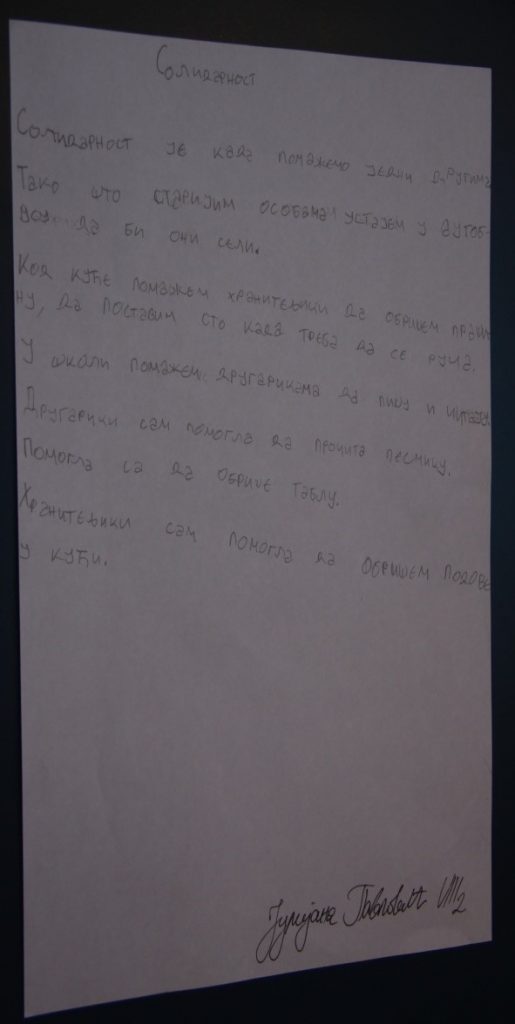 Солидарност
Солидарност је када помажемо једни другима
Тако што старијим особама устајем у аутоб-
усу да би они сели.
Код куће помажем хранитељици да обришем праши-
ну, да поставим сто када треба да се руча.
У школи помажем другарикама да пишу и читају.
Другарики сам помогла да прочита песмицу.
Помогла са да обрише таблу.
Хранитељики сам помогла да обришем подове
у кући.
Јулијана VIII2